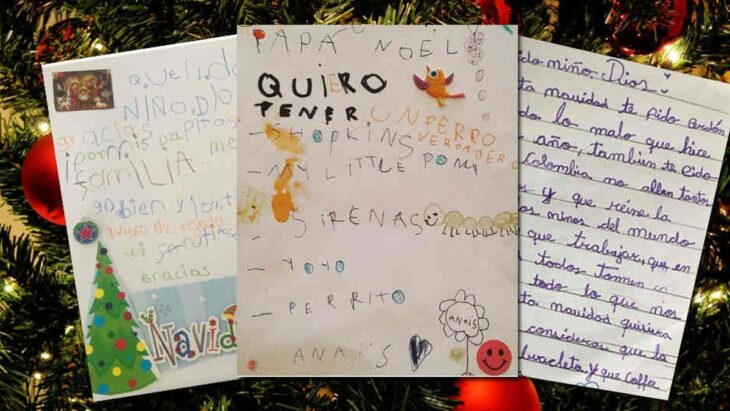 Querido
NIÑO DIO
gracias
por mis papitos
me
FamiLIA
Gracias
Navid
PAPÁ NOËL
QUIERO
TENER UN PERRO
VERDADERO
- SHOPKINS
- MY LITTLE PONI
SIRENAS
- YOYO
- PERRITO
ANAÏS
ANAIS
ido niño Dios
ta navidad te pido perdón
do lo malo que hice
año, también te pido
Colombia no allan tantos
s y que reine la
os niños del mundo
que trabajar, que en
todos tomen
todo lo que nos
ta navidad quisiera
consideras que la
y que Coffee